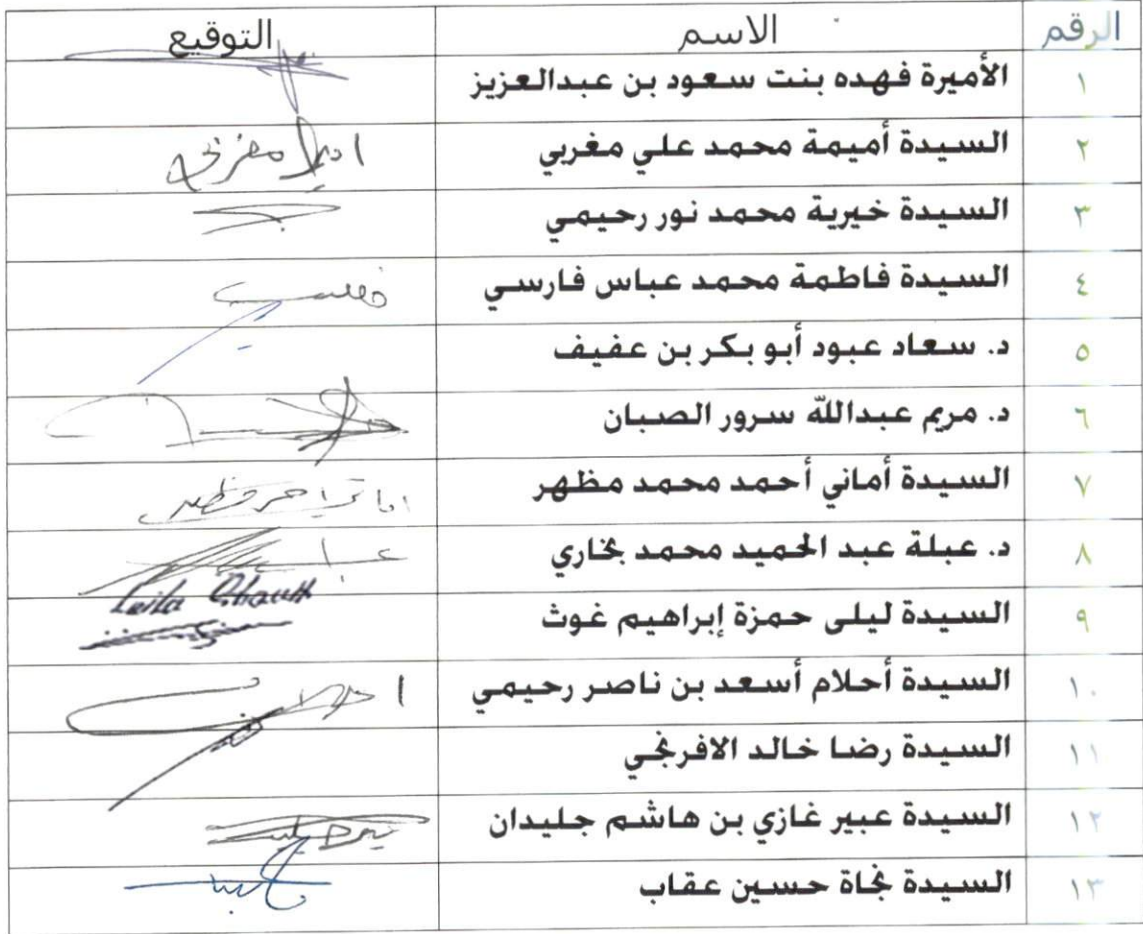 الرقم الاسم التوقيع
١ الأميرة فهده بنت سعود بن عبدالعزيز
٢ السيدة أميمة محمد علي مغربي
٣ السيدة خيرية محمد نور رحيمي
٤ السيدة فاطمة محمد عباس فارسي
٥ د. سعاد عبود أبو بكر بن عفيف
٦ د. مريم عبدالله سرور الصبان
٧ السيدة أماني أحمد محمد مظهر
٨ د. عبلة عبد الحميد محمد بخاري
٩ السيدة ليلى حمزة إبراهيم غوث Leila
١٠ السيدة أحلام أسعد بن ناصر رحيمي
١١ السيدة رضا خالد الافرنجي
١٢ السيدة عبير غازي بن هاشم جليدان
١٣ السيدة نجاة حسين عقاب